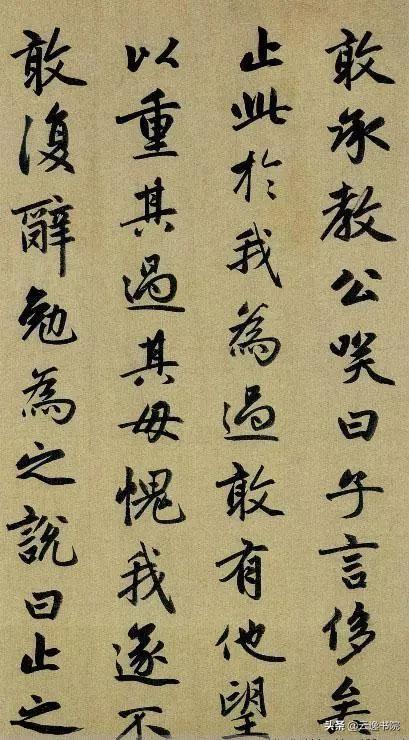 敢承教公咲曰子言侈矣
止此於我為過敢有他望
以重其過其毋愧我遂不
敢復辭勉為之說曰止之
头条 @云逸书院